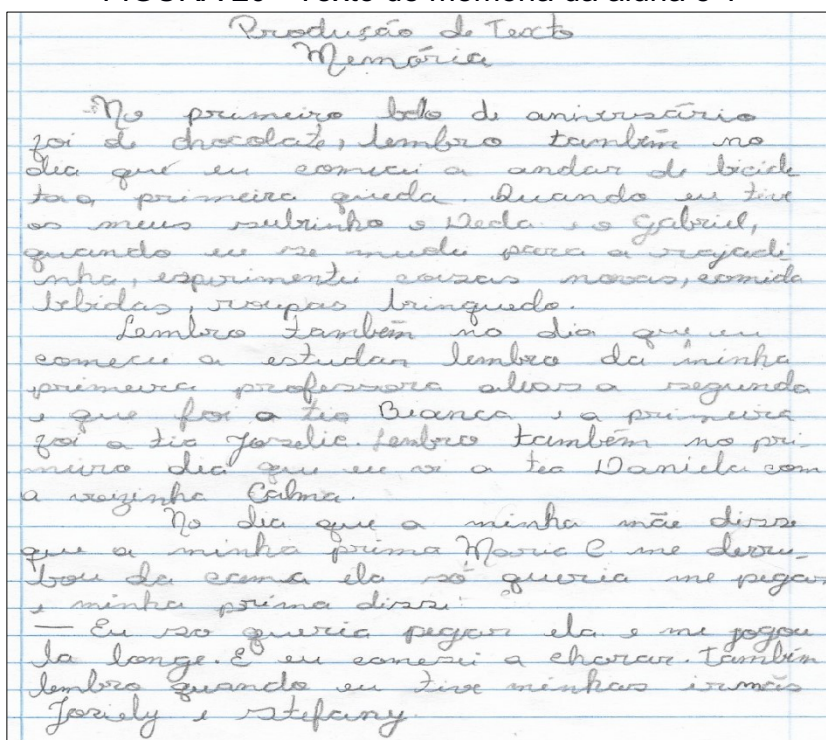 Produsão de Texto
Memória
No primeiro bolo de aniversário
foi de chocolate, lembro também no
dia que eu comecei a andar de bicicle
ta a primeira queda. Quando eu tive
os meus subrinho o e o Gabriel,
quando eu se mudei para a rajadi
nha, esperimentei coisas novas, comida
bebidas, roupas brinquedo.
Lembro também no dia que eu
comecei a estudar lembro da minha
primeira professora alias a segunda
e que foi a tia Bianca e a primeira
foi a tia Joselia. Lembro também no pri-
meiro dia que eu vi a tia Daniela com
a vozinha Calma.
No dia que a minha mãe disse
que a minha prima Maria C me derru-
bou da cama ela só queria me pegar
e minha prima disse:
— Eu so queria pegar ela e me jogou
la longe. E eu comesei a chorar. Também
lembro quando eu tive minhas irmãs
Joziely e stefany.